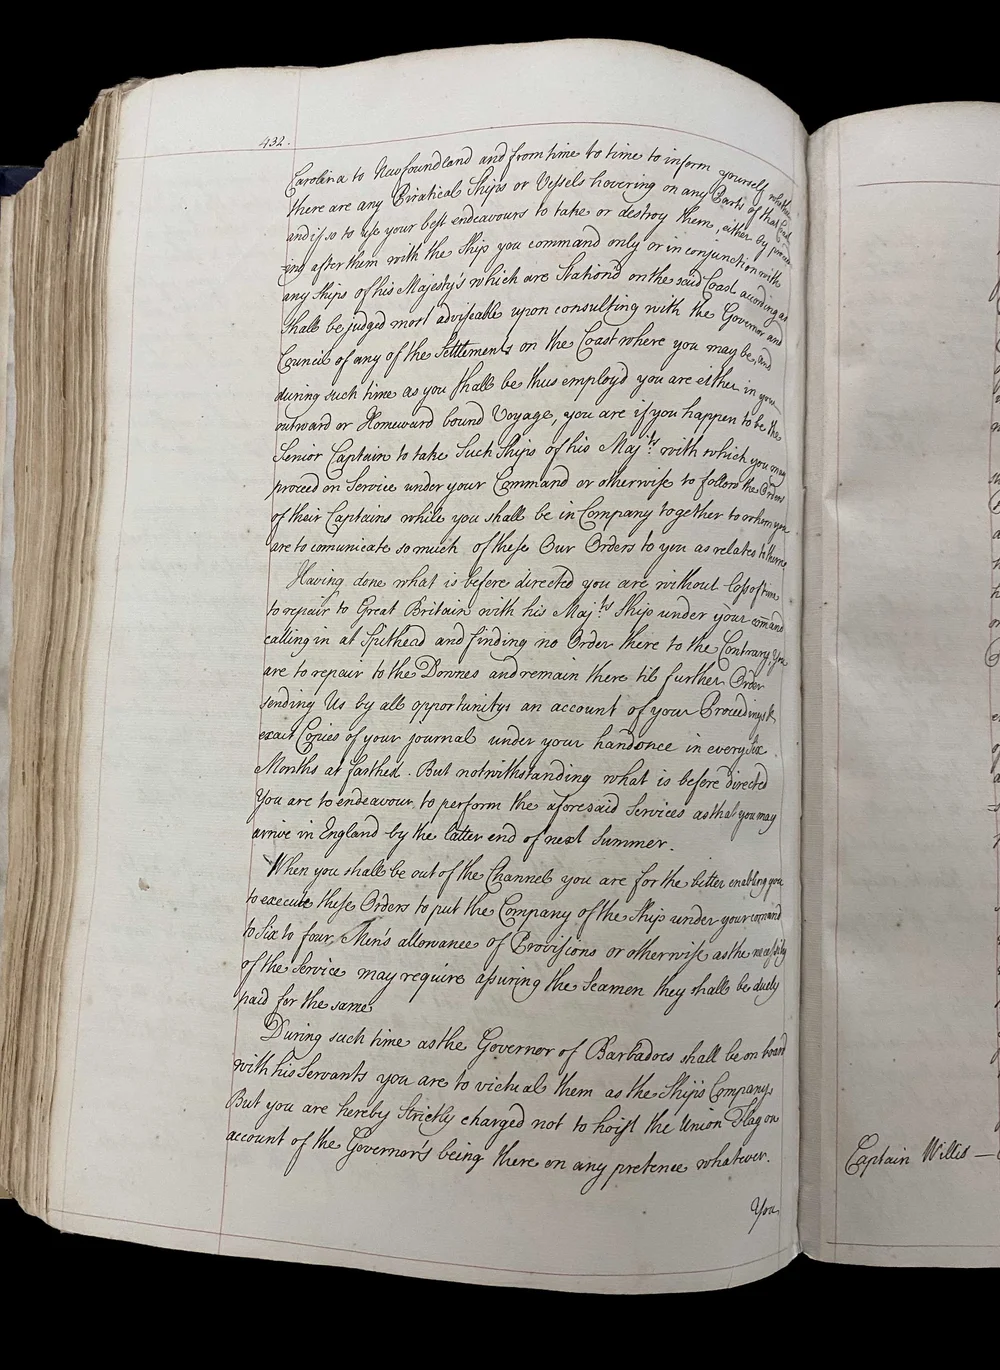 432.
Carolina to Newfoundland and from time to time to inform yourself whether
there are any Piratical Ships or Vessels hovering on any Parts of that Coast
and if so to use your best endeavours to take or destroy them, either by proceed-
ing after them with the Ship you command only or in conjunction with
any Ships of his Majesty's which are Station'd on the said Coast according as
shall be judged most adviseable upon consulting with the Governor and
Council of any of the Settlements on the Coast where you may be, and
during such time as you shall be thus employ'd you are either in your
outward or Homeward bound Voyage, you are if you happen to be the
Senior Captain to take Such Ships of his Maj.ts with which you may
proceed on Service under your Command or otherwise to follow the Orders
of their Captains while you shall be in Company together to whom you
are to comunicate so much of these Our Orders to you as relates to them.
Having done what is before directed you are without loss of time
to repair to Great Britain with his Maj.ts Ship under your comand
calling in at Spithead and finding no Order there to the Contrary You
are to repair to the Downes and remain there til further Order
sending Us by all opportunitys an account of your Proceedings &
exact Copies of your journal under your hand once in every Six
Months at farthest. But notwithstanding what is before directed
You are to endeavour to perform the aforesaid Services as that you may
arrive in England by the latter end of next Summer.
When you shall be out of the Channel you are for the better enabling you
to execute these Orders to put the Company of the Ship under your comand
to Six to four Men's allowance of Provisions or otherwise as the necessity
of the Service may require assuring the Seamen they shall be duely
paid for the same
During such time as the Governor of Barbadoes shall be on board
with his Servants you are to victual them as the Ship's Company
But you are hereby Strictly charged not to hoist the Union Flag on
account of the Governor's being there on any pretence whatever.
You
Captain Willis —